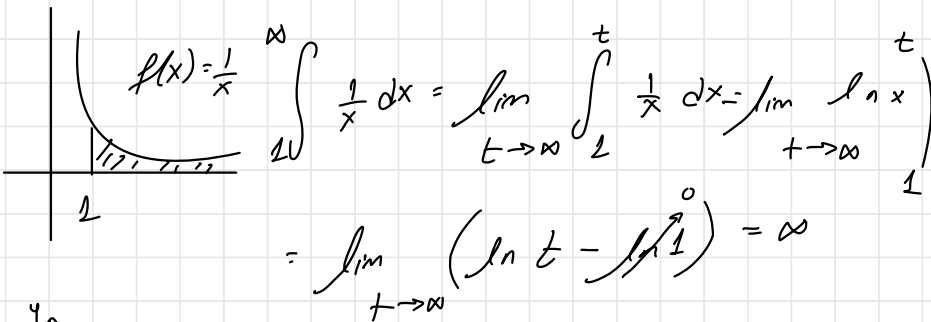 f(x) = 1/x
∞∫1 1/x dx = lim t→∞ ∫1^t 1/x dx = lim t→∞ ln x |1^t
1
= lim t→∞ (ln t - ln 1 → 0) = ∞